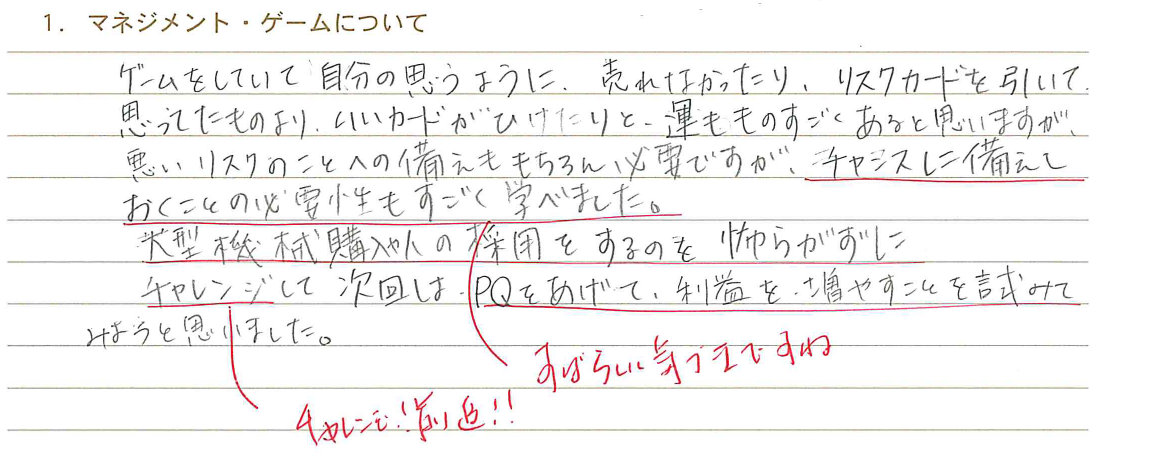 1. マネジメント・ゲームについて
ゲームをしていて自分の思うように、売れなかったり、リスクカードを引いて
思ってたものより、いいカードがひけたりと、運もものすごくあると思いますが、
悪いリスクのことへの備えももちろん必要ですが、チャンスに備えして
おくことの必要性もすごく学べました。
大型機械購入や人の採用をするのを怖がらずに
チャレンジして次回は、PQをあげて、利益を、増やすことを試みて
みようと思いました。
すばらしい気づきですね
チャレンジ!前進!!